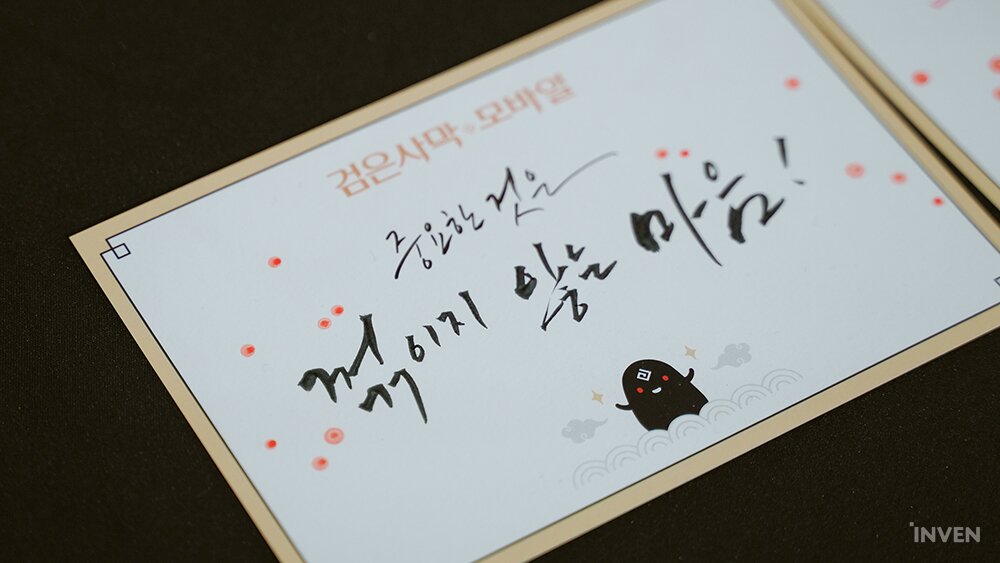 검은사막 모바일
중요한 것은
꺾이지 않는 마음!
INVEN